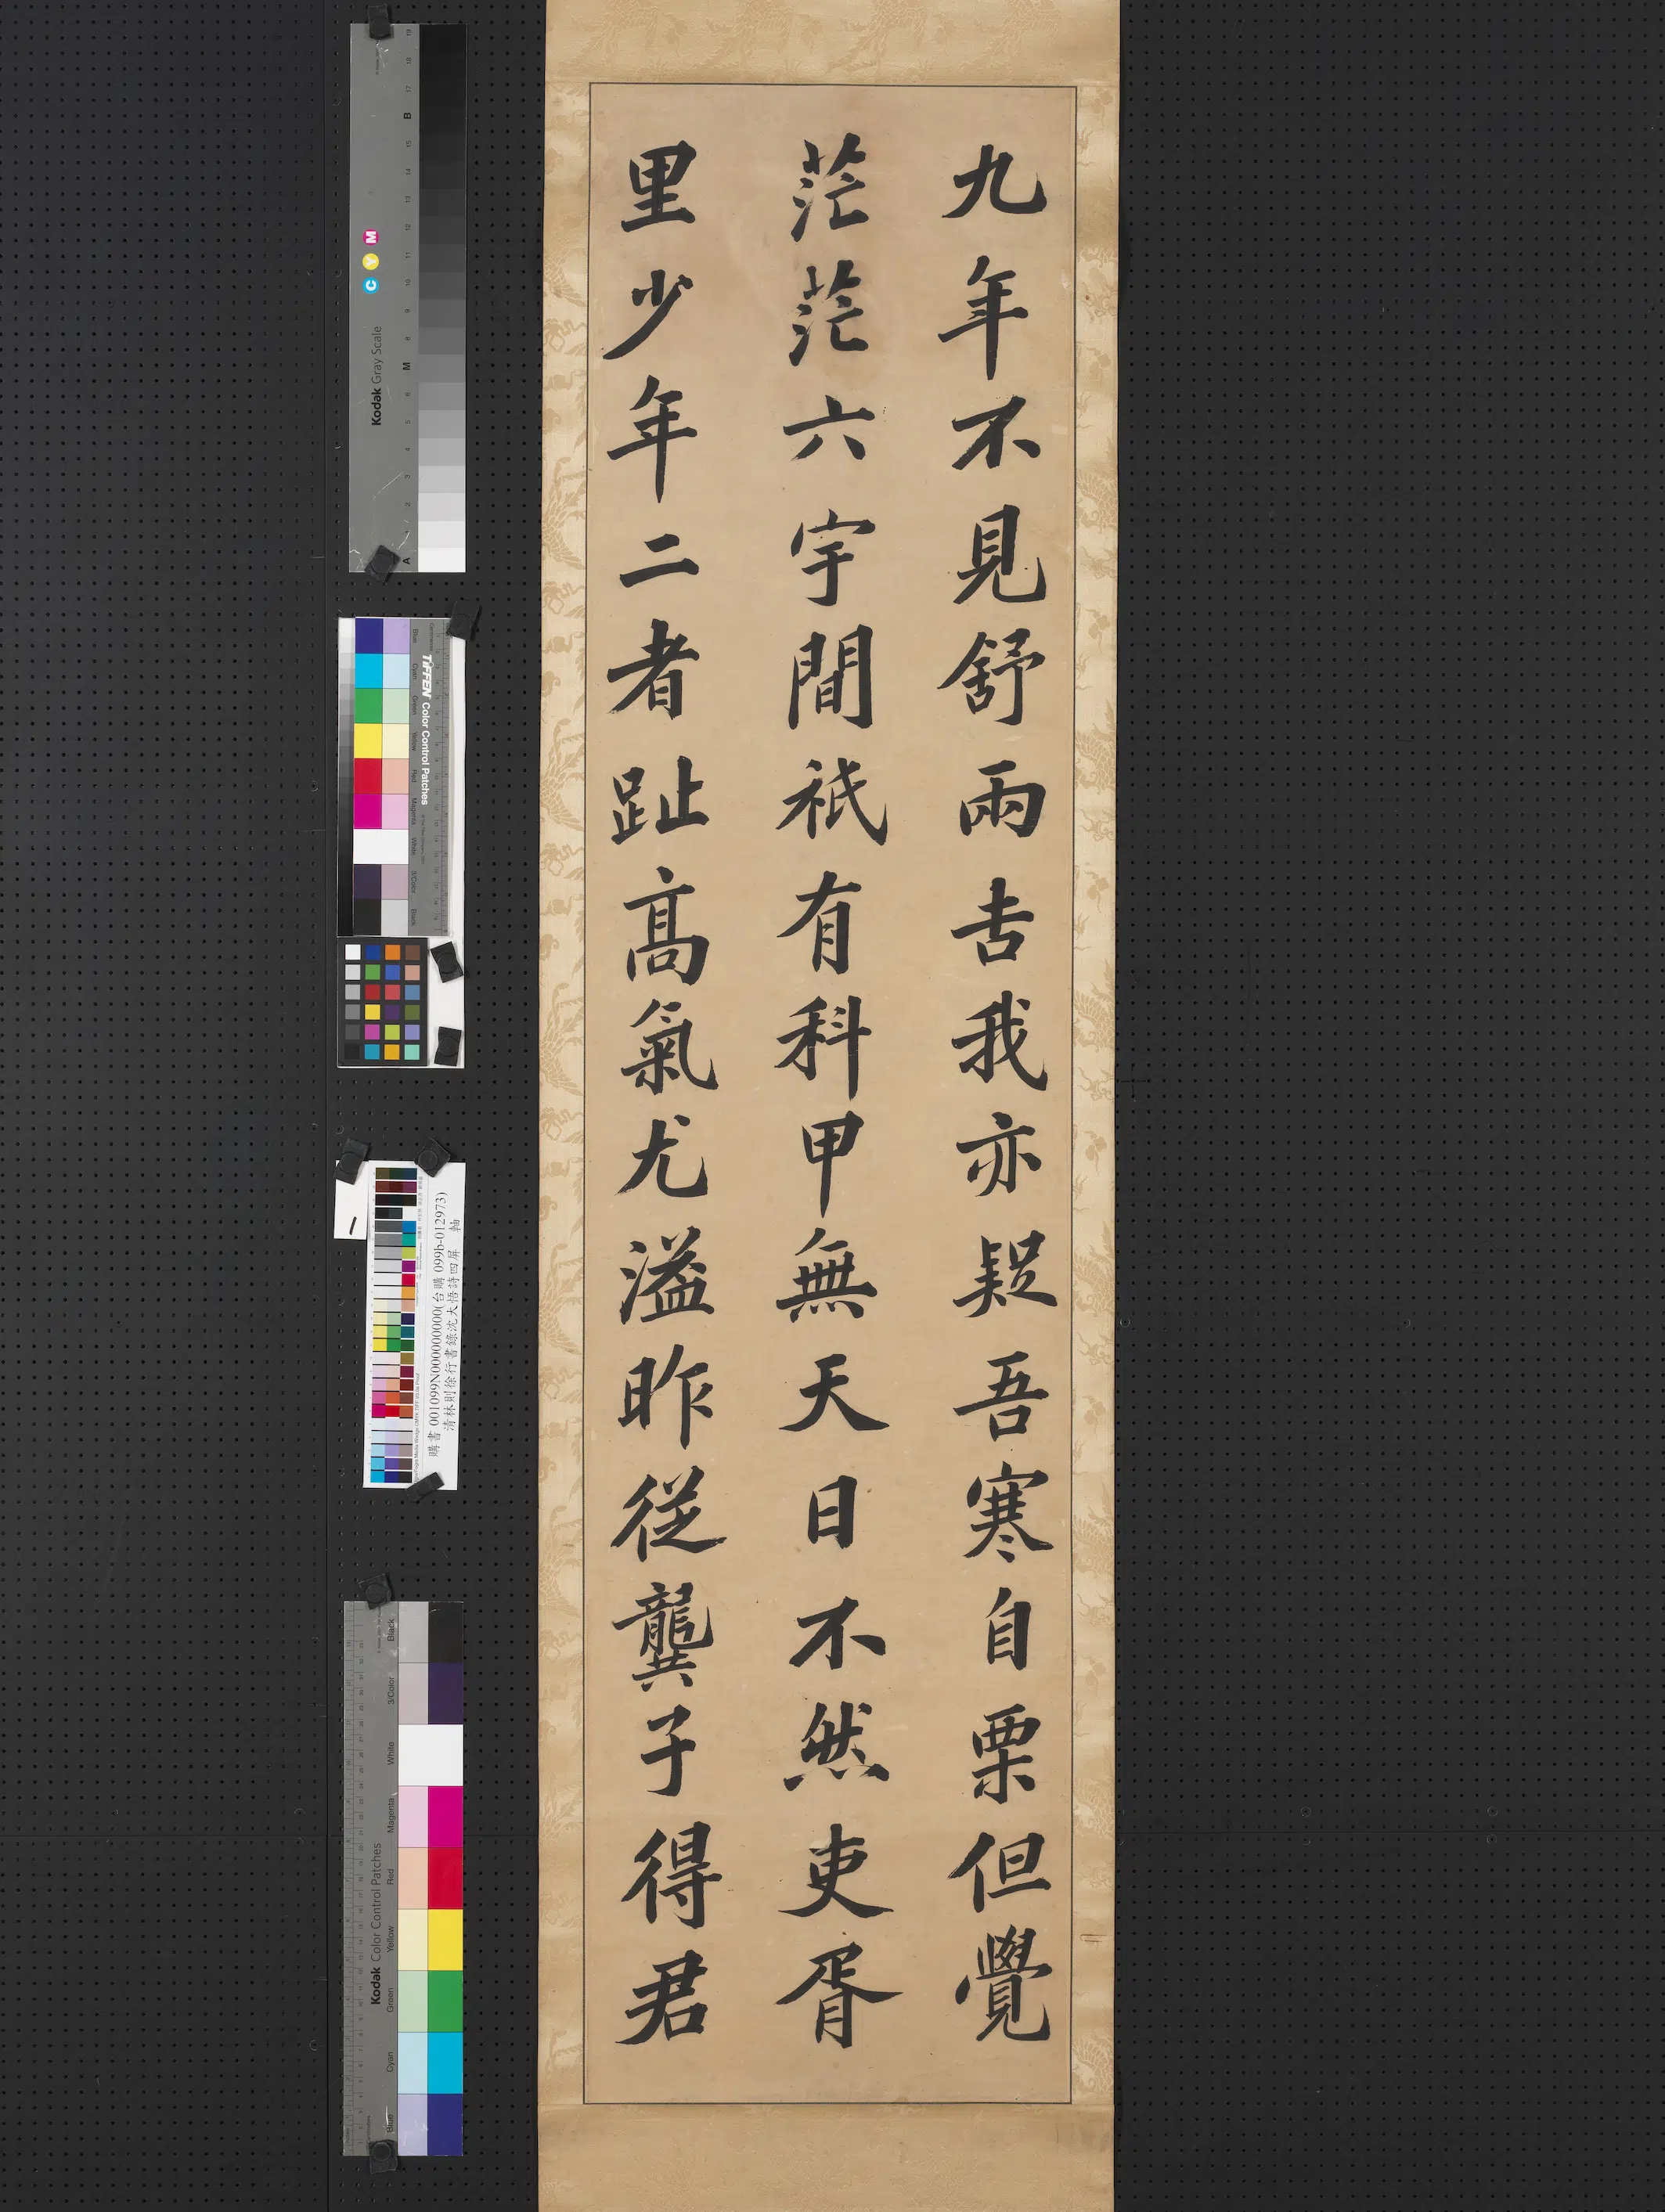 九年不見舒雨吉我亦疑吾寒自栗但覺
茫茫六宇間祇有科甲無天日不然吏胥
里少年二者趾高氣尤溢昨従龔子得君
Kodak Gray Scale
C Y M
TIFFEN Color Control Patches
Blue Cyan Green Yellow Red Magenta White 3/Color Black
購書 001099N000000000(台購 099b-012973)
清林則徐行書錄沈大悟詩四屏 軸
Kodak Color Control Patches
Blue Cyan Green Yellow Red Magenta White 3/Color Black